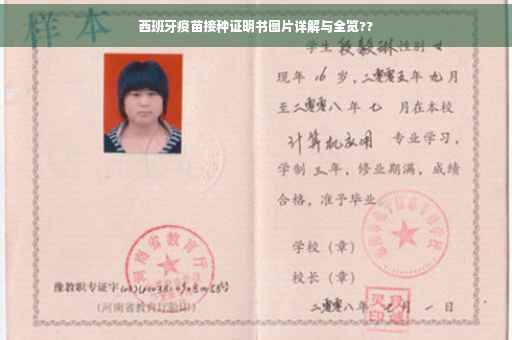 西班牙疫苗接种证明书图片详解与全览??
样本
学生段毅琳性别女
现年16岁，二零零五年九月
至二零零八年七月在本校
计算机应用 专业学习，
学制三年，修业期满，成绩
合格，准予毕业。
学校（章）
校长（章）
二零零八年七月一日
河南省教育厅
豫教职专证字
（河南省教育厅验印）